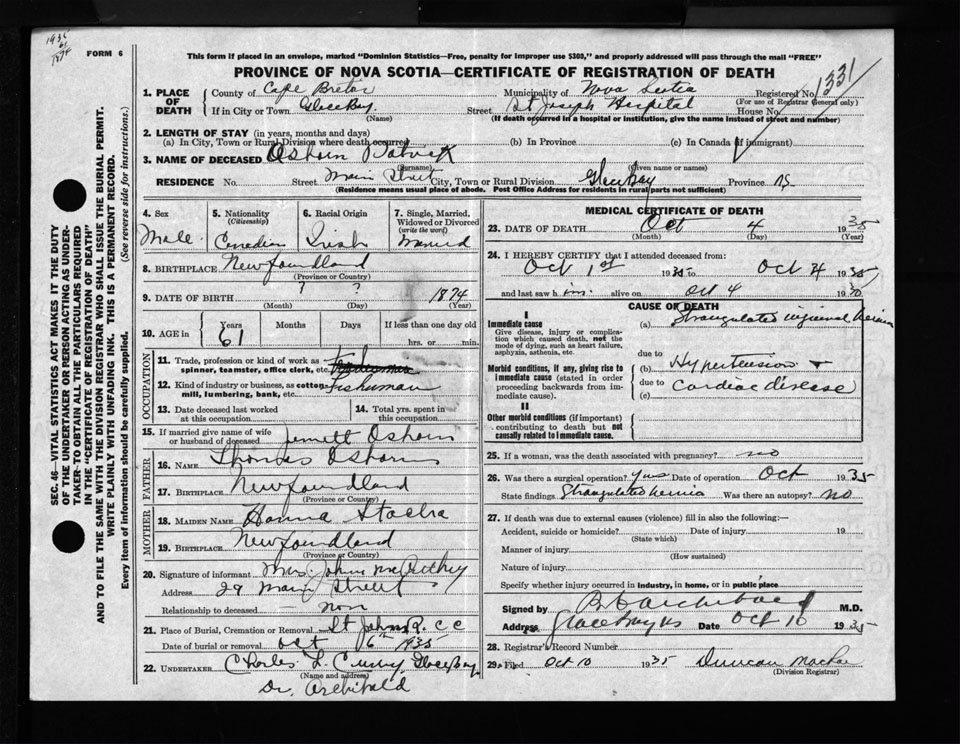 1935
61
1874
FORM 6
This form if placed in an envelope, marked "Dominion Statistics—Free, penalty for improper use $300," and properly addressed will pass through the mail "FREE"
PROVINCE OF NOVA SCOTIA—CERTIFICATE OF REGISTRATION OF DEATH
1. PLACE OF DEATH County of Cape Breton Municipality of Nova Scotia Registered No. 1331
(For use of Registrar General only)
If in City or Town Glace Bay. Street St Joseph Hospital House No.
(Name) (If death occurred in a hospital or institution, give the name instead of street and number)
2. LENGTH OF STAY (in years, months and days)
(a) In City, Town or Rural Division where death occurred (b) In Province (c) In Canada (if immigrant)
3. NAME OF DECEASED Osborn Patrick
(Surname) (Given name or names)
RESIDENCE No. Street Main Street City, Town or Rural Division Glace Bay Province NS
(Residence means usual place of abode. Post Office Address for residents in rural parts not sufficient)
4. Sex 5. Nationality 6. Racial Origin 7. Single, Married, Widowed or Divorced
(Citizenship) (write the word)
Male. Canadian Irish Married
8. BIRTHPLACE Newfoundland
(Province or Country)
9. DATE OF BIRTH ? ? 1874
(Month) (Day) (Year)
10. AGE in Years Months Days If less than one day old
61 hrs. or min.
OCCUPATION
11. Trade, profession or kind of work as spinner, teamster, office clerk, etc. Fish
12. Kind of industry or business, as cotton mill, lumbering, bank, etc. Fisherman
13. Date deceased last worked at this occupation
14. Total yrs. spent in this occupation
15. If married give name of wife or husband of deceased Osborn
FATHER
16. NAME Thomas Osborn
17. BIRTHPLACE Newfoundland
(Province or Country)
MOTHER
18. MAIDEN NAME Hanna
19. BIRTHPLACE Newfoundland
(Province or Country)
20. Signature of informant Mrs. John
Address 29 Main Street
Relationship to deceased non
21. Place of Burial, Cremation or Removal St Johns R. C C
Date of burial or removal Oct 6th 1935
22. UNDERTAKER Charles L. Curry Glace Bay
(Name and address)
Dr. Archibald
MEDICAL CERTIFICATE OF DEATH
23. DATE OF DEATH Oct 4 1935
(Month) (Day) (Year)
24. I HEREBY CERTIFY that I attended deceased from:
Oct 1st 1935 to Oct 4 1935
and last saw h im alive on Oct 4 1935
CAUSE OF DEATH
I
Immediate cause (a) Strangulated inguinal hernia
Give disease, injury or complication which caused death, not the mode of dying, such as heart failure, asphyxia, asthenia, etc.
due to
Morbid conditions, if any, giving rise to immediate cause (stated in order proceeding backwards from immediate cause). (b) Hypertension +
due to Cardiac disease
(c)
II
Other morbid conditions (if important) contributing to death but not causally related to immediate cause.
25. If a woman, was the death associated with pregnancy? no
26. Was there a surgical operation? yes Date of operation Oct 1935
State findings Strangulated hernia Was there an autopsy? no
27. If death was due to external causes (violence) fill in also the following:—
Accident, suicide or homicide? Date of injury 19
(State which)
Manner of injury
(How sustained)
Nature of injury
Specify whether injury occurred in industry, in home, or in public place
Signed by Archibald M.D.
Address Glace Bay NS Date Oct 10 1935
28. Registrar's Record Number
29. Filed Oct 10 1935 Duncan
(Division Registrar)
SEC. 46—VITAL STATISTICS ACT MAKES IT THE DUTY
OF THE UNDERTAKER OR PERSON ACTING AS UNDER-
TAKER TO OBTAIN ALL THE PARTICULARS REQUIRED
IN THE "CERTIFICATE OF REGISTRATION OF DEATH"
AND TO FILE THE SAME WITH THE DIVISION REGISTRAR WHO SHALL ISSUE THE BURIAL PERMIT.
WRITE PLAINLY WITH UNFADING INK. THIS IS A PERMANENT RECORD.
Every item of information should be carefully supplied. (See reverse side for instructions.)